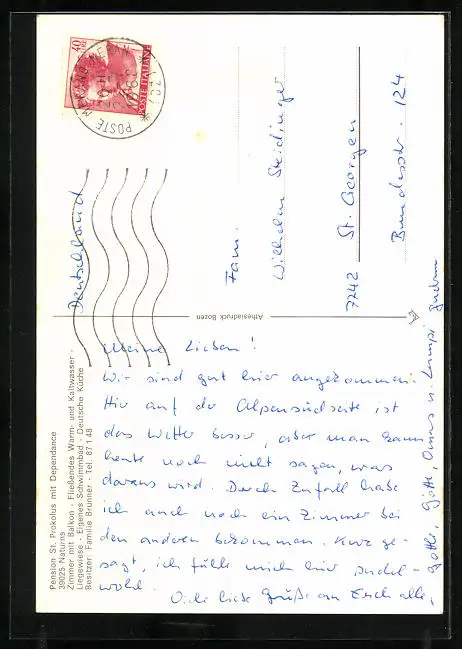 Pension St. Prokolus mit Dependance
39025 Naturns
Zimmer mit Balkon · Fließendes Warm- und Kaltwasser ·
Liegewiese · Eigenes Schwimmbad · Deutsche Küche
Besitzer: Familie Brunner · Tel. 87148
Meine Lieben!
Wir sind gut hier angekommen.
Hier auf der Alpensüdseite ist
das Wetter besser, aber man kann
heute noch nicht sagen, was
daraus wird. Durch Zufall habe
ich auch noch ein Zimmer bei
den anderen bekommen. Kurz ge-
sagt, ich fühle mich hier pudel-
wohl. Viele liebe Grüße an Euch alle,
Gotte, Götte, Omas u.
Athesiadruck Bozen
40
LIRE
POSTE ITALIANE
MERANO MERAN
POSTE
Fam.
Wilhelm Steidinger
7742 St. Georgen
Bundesstr. 124
Deutschland